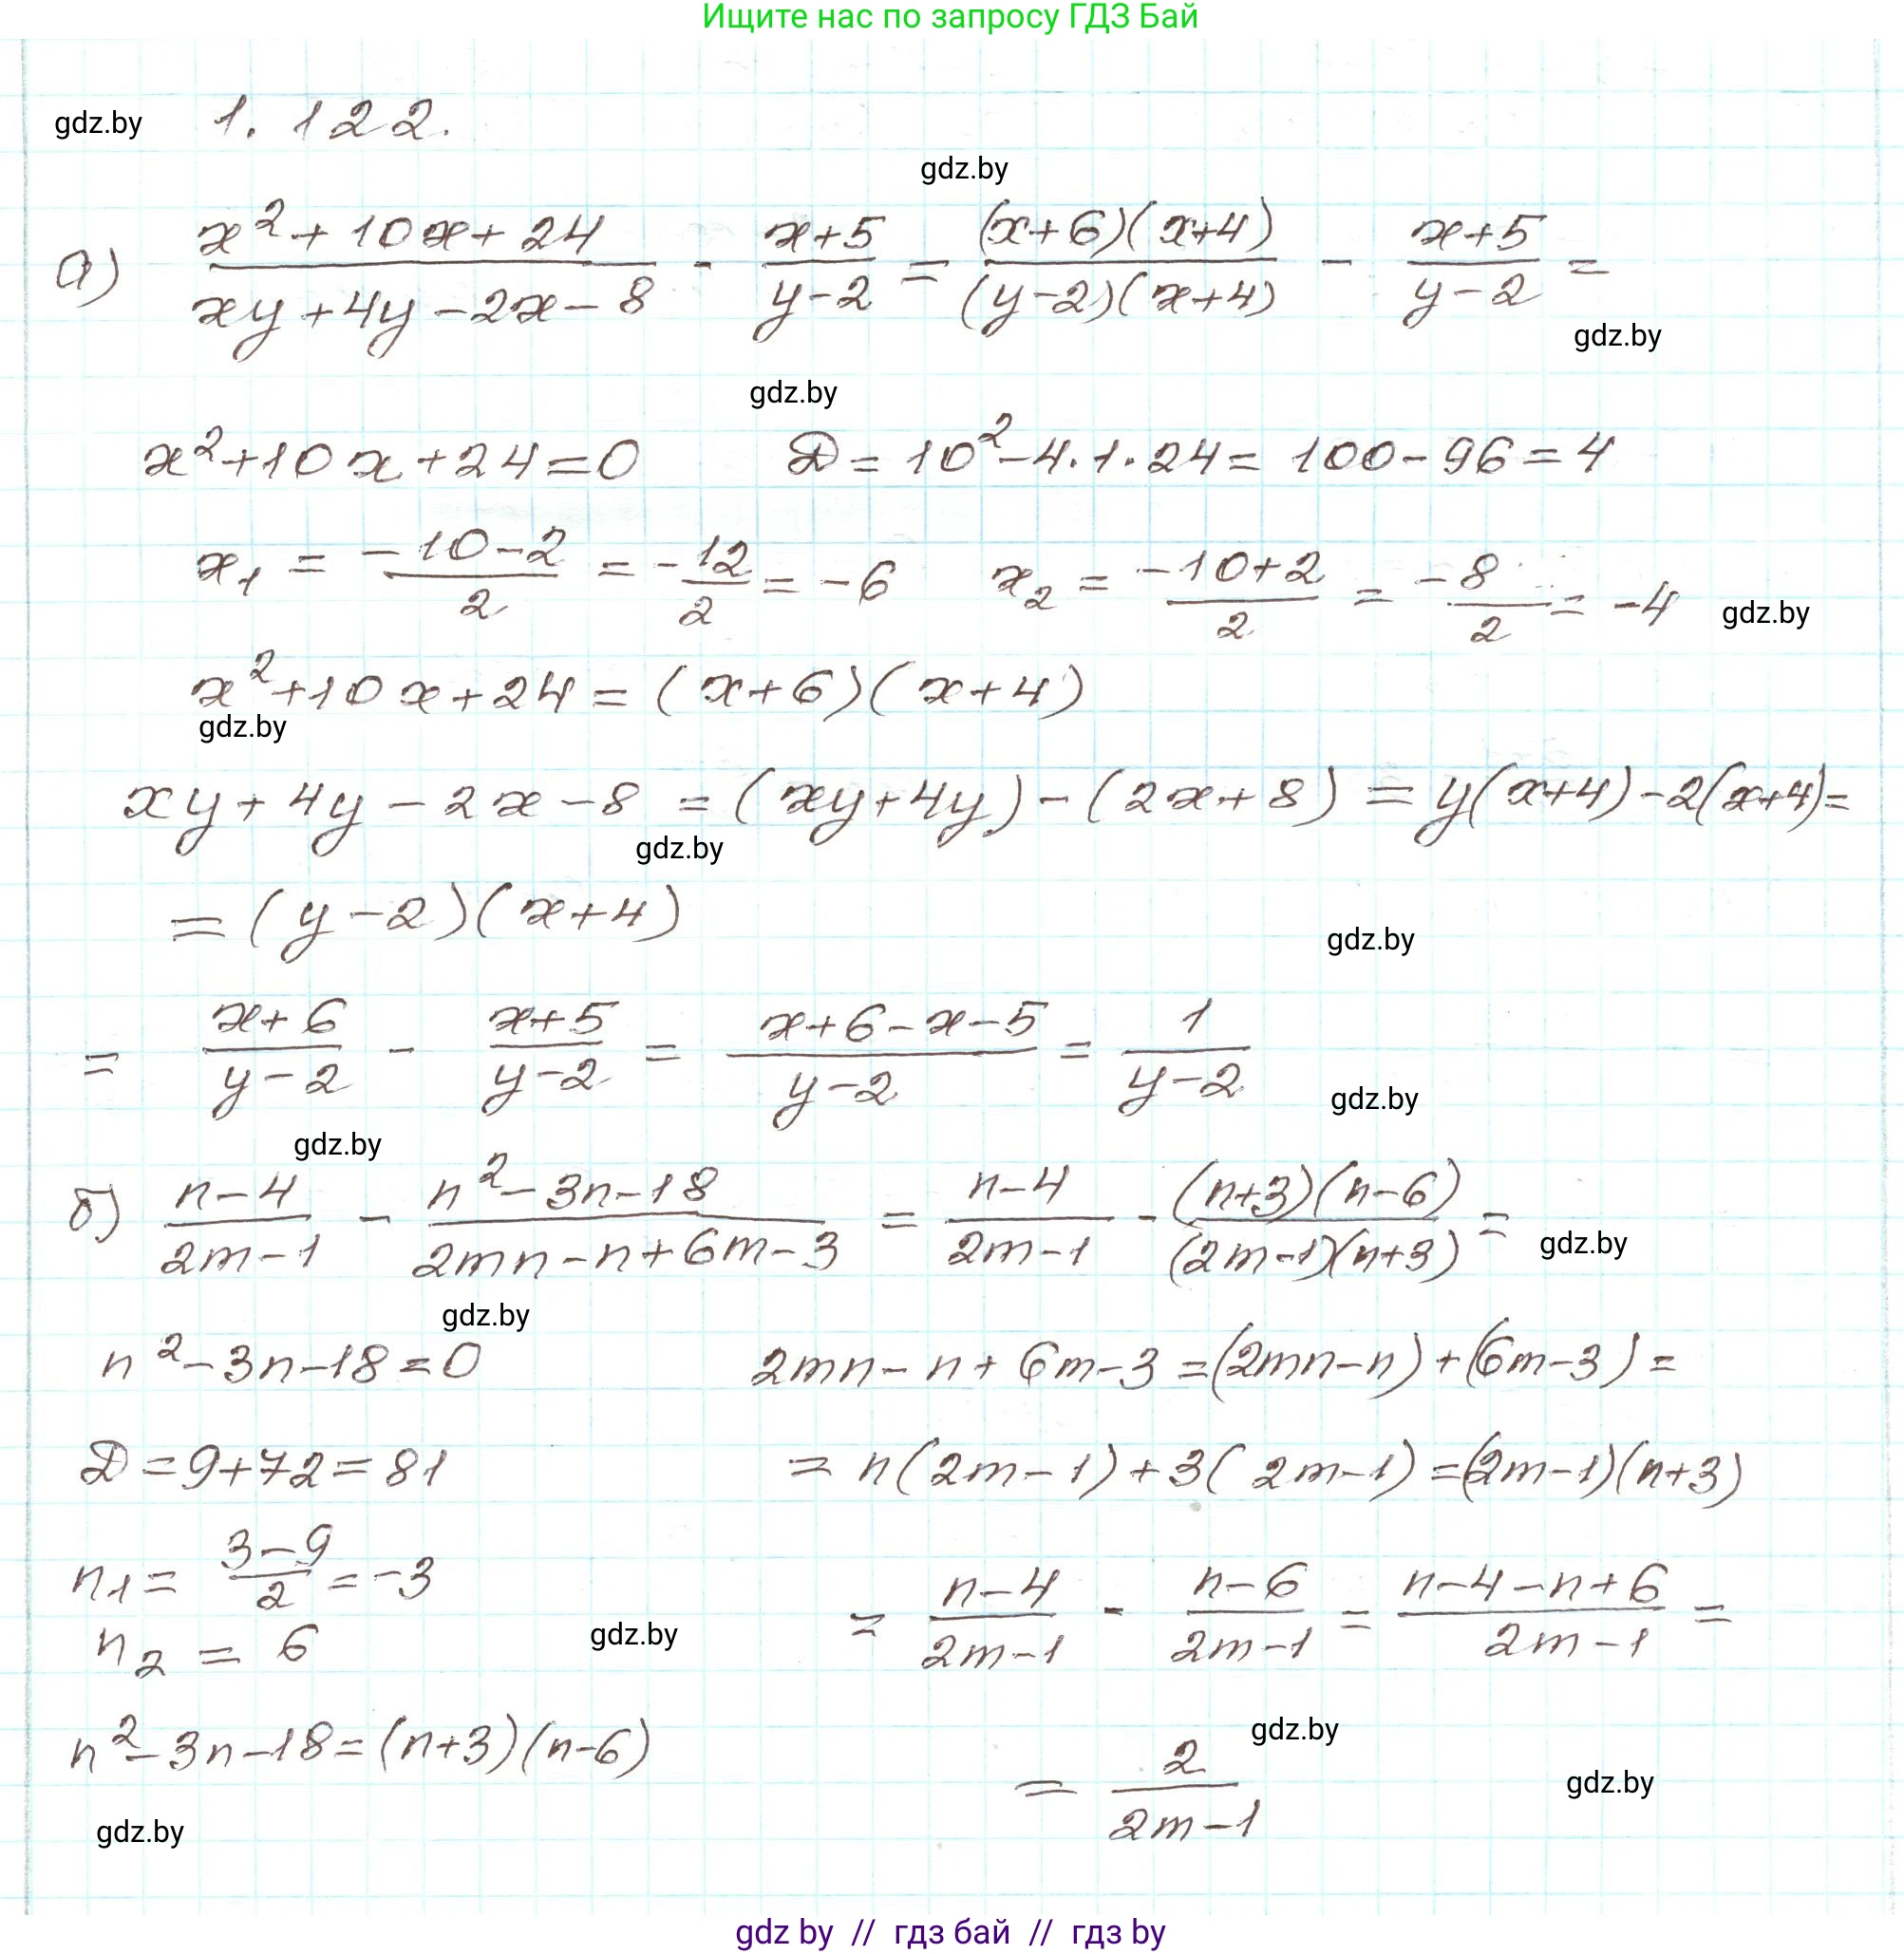 Ищите нас по запросу ГДЗ Бай
gdz.by 1.122.
gdz.by
а) (x²+10x+24)/(xy+4y-2x-8) - (x+5)/(y-2) = ((x+6)(x+4))/((y-2)(x+4)) - (x+5)/(y-2) =
gdz.by
gdz.by
x²+10x+24=0 D=10²-4·1·24=100-96=4
x₁ = (-10-2)/2 = -12/2 = -6 x₂ = (-10+2)/2 = -8/2 = -4 gdz.by
x²+10x+24=(x+6)(x+4)
gdz.by
xy+4y-2x-8=(xy+4y)-(2x+8)=y(x+4)-2(x+4)=
gdz.by
=(y-2)(x+4)
gdz.by
= (x+6)/(y-2) - (x+5)/(y-2) = (x+6-x-5)/(y-2) = 1/(y-2)
gdz.by
gdz.by
б) (n-4)/(2m-1) - (n²-3n-18)/(2mn-n+6m-3) = (n-4)/(2m-1) - ((n+3)(n-6))/((2m-1)(n+3)) =
gdz.by
gdz.by
n²-3n-18=0 2mn-n+6m-3=(2mn-n)+(6m-3)=
D=9+72=81 =n(2m-1)+3(2m-1)=(2m-1)(n+3)
n₁= (3-9)/2 =-3 = (n-4)/(2m-1) - (n-6)/(2m-1) = (n-4-n+6)/(2m-1) =
n₂ = 6 gdz.by
n²-3n-18=(n+3)(n-6) gdz.by
= 2/(2m-1) gdz.by
gdz.by
gdz by // гдз бай // гдз by